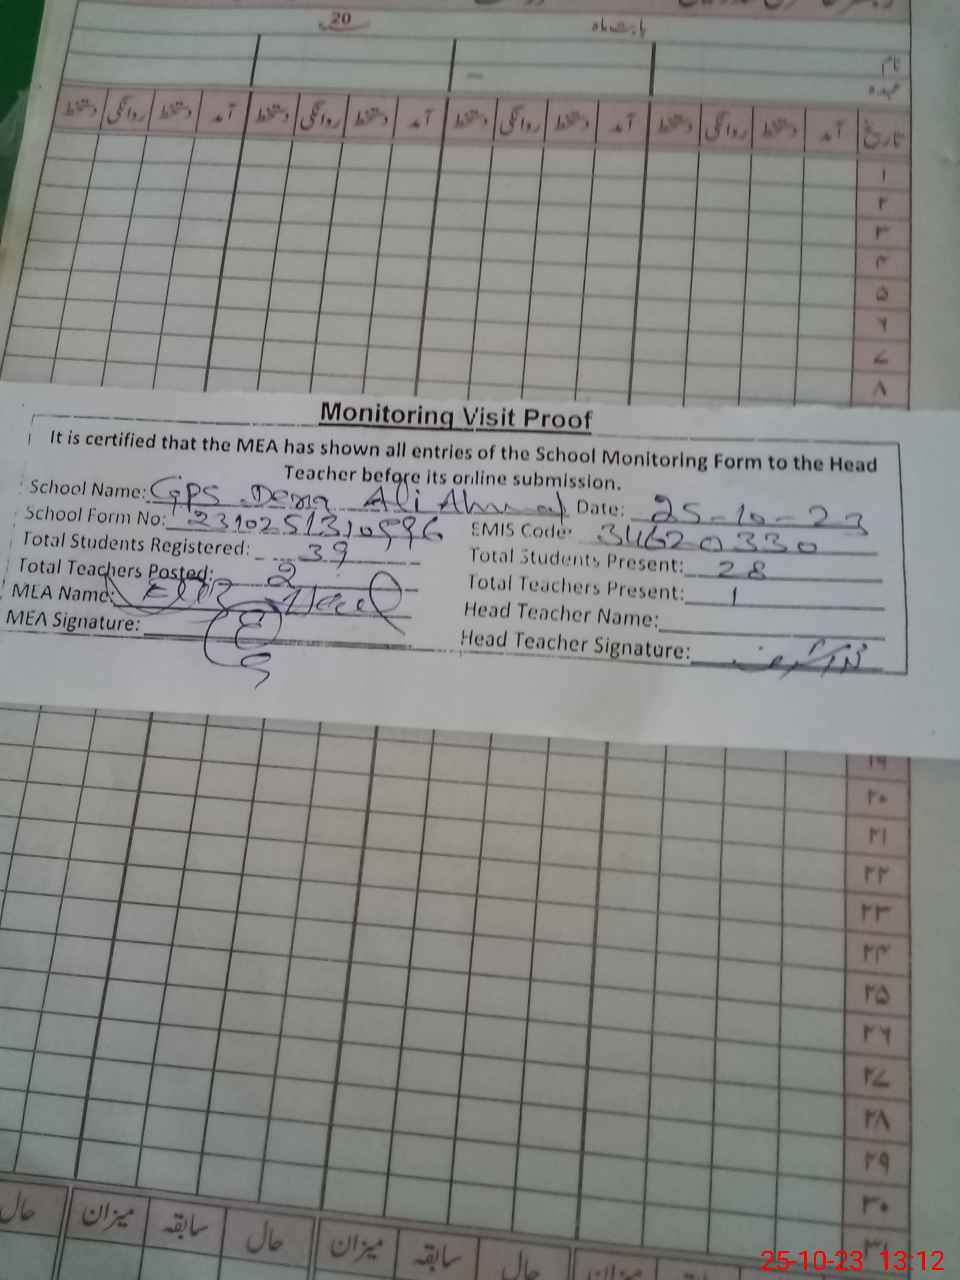 20 بابت ماہ
نام
عہدہ
تاریخ آمد دستخط روانگی دستخط آمد دستخط روانگی دستخط آمد دستخط روانگی دستخط آمد دستخط روانگی دستخط
۱
۲
۳
۴
۵
۶
۷
۸
Monitoring Visit Proof
It is certified that the MEA has shown all entries of the School Monitoring Form to the Head
Teacher before its online submission.
School Name: GPS Dera Ali Ahmad Date: 25-10-23
School Form No: EMIS Code: 34620330
Total Students Registered: 39 Total Students Present: 28
Total Teachers Posted: 2 Total Teachers Present: 1
MEA Name: Head Teacher Name:
MEA Signature: Head Teacher Signature:
۱۹
۲۰
۲۱
۲۲
۲۳
۲۴
۲۵
۲۶
۲۷
۲۸
۲۹
۳۰
۳۱
حال سابقہ میزان حال سابقہ میزان حال
25-10-23 13:12